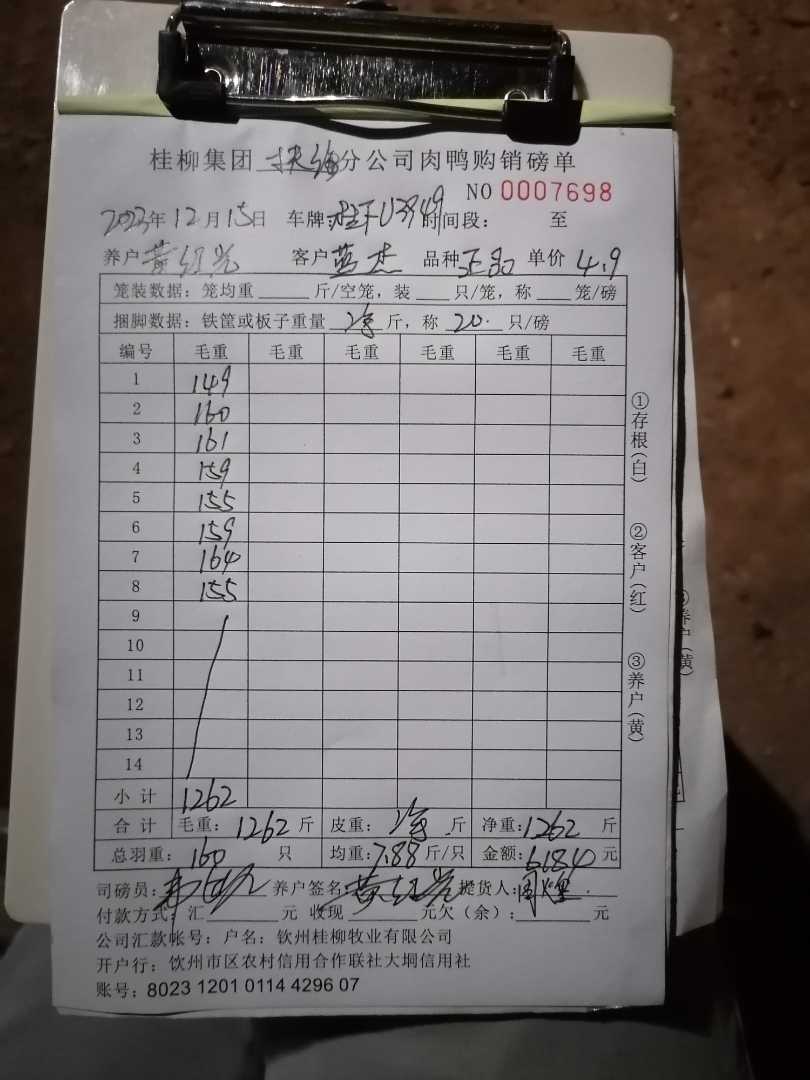 桂柳集团 扶绥 分公司肉鸭购销磅单
NO 0007698
2023年12月15日 车牌: 桂FU3949 时间段: 至
养户 黄红光 客户 蓝杰 品种 正品 单价 4.9
笼装数据: 笼均重 斤/空笼, 装 只/笼, 称 笼/磅
捆脚数据: 铁筐或板子重量 净 斤, 称 20 只/磅
编号 毛重 毛重 毛重 毛重 毛重 毛重
1 149
2 160
3 161
4 159
5 155
6 159
7 164
8 155
9
10
11
12
13
14
小计 1262
合计 毛重: 1262 斤 皮重: 净 斤 净重: 1262 斤
总羽重: 160 只 均重: 7.88 斤/只 金额: 6184 元
司磅员: 养户签名: 黄红光 提货人:
付款方式: 汇 元 收现 元欠(余): 元
公司汇款帐号: 户名: 钦州桂柳牧业有限公司
开户行: 钦州市区农村信用合作联社大垌信用社
账号: 8023 1201 0114 4296 07
①存根(白)
②客户(红)
③养户(黄)
③养户(黄)